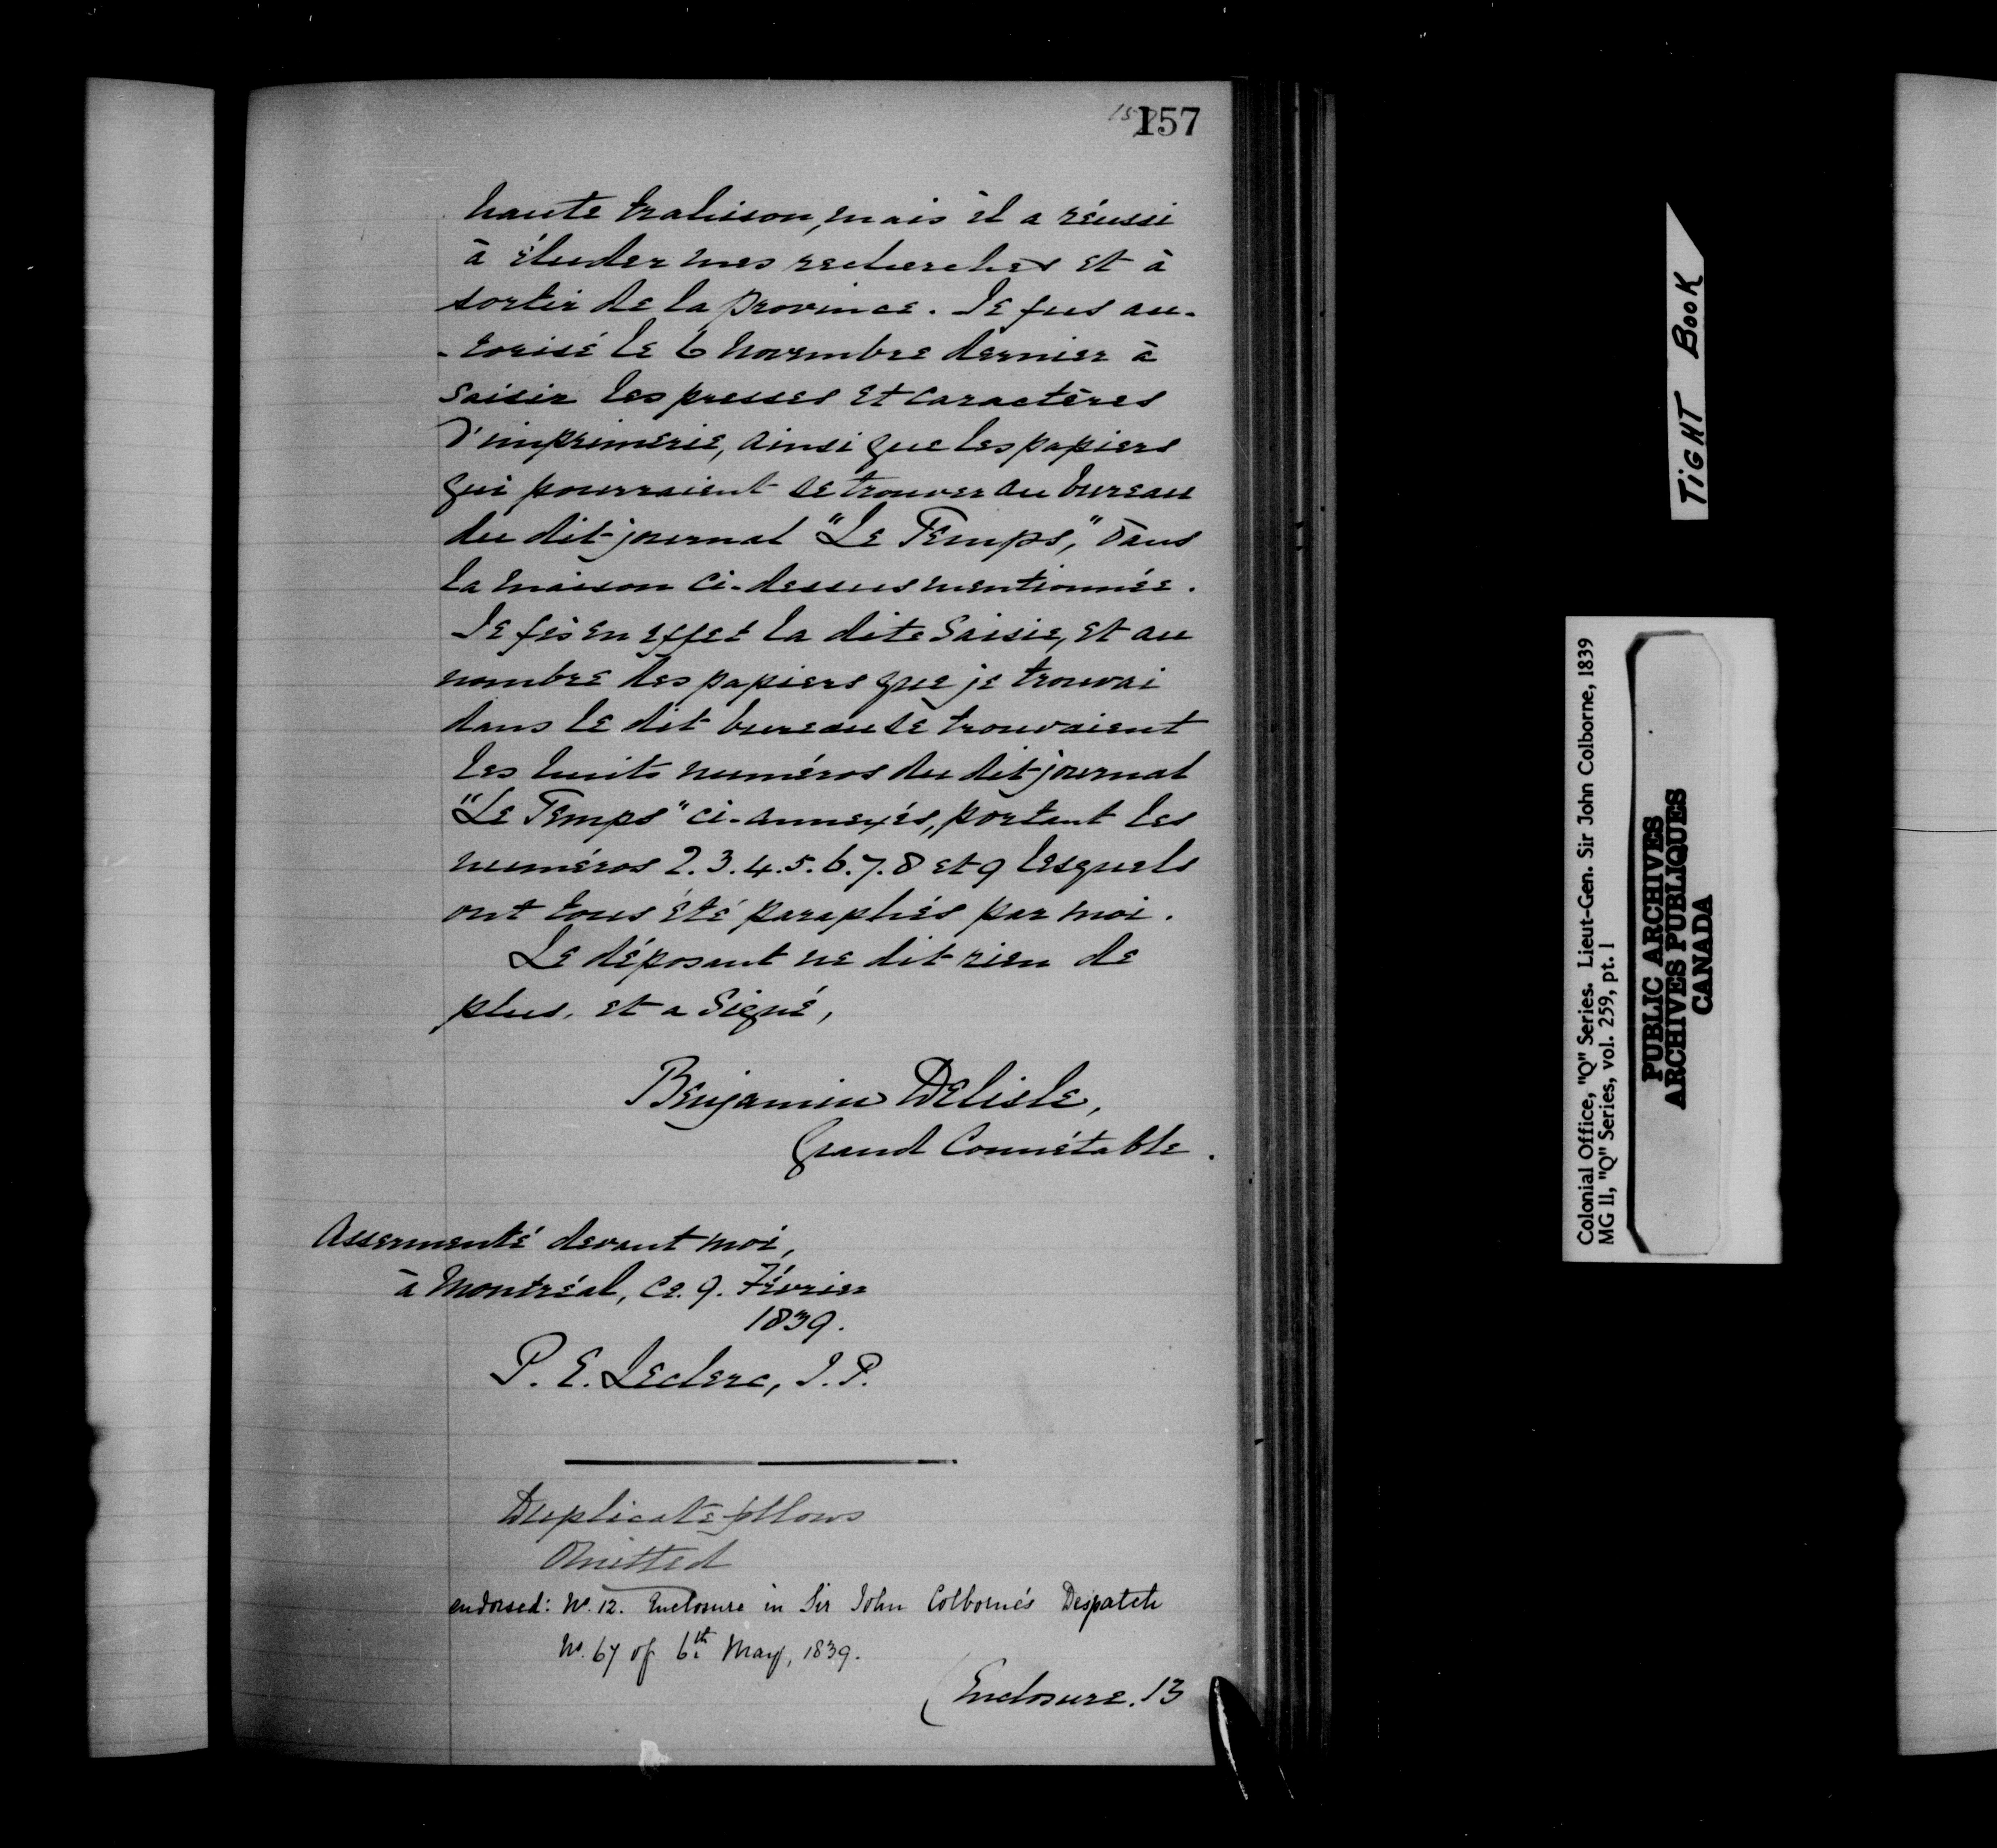 157
haute trahison, mais il a réussi
à éluder mes recherches et à
sortir de la Province. Je fus au-
-torisé le 6 Novembre dernier à
saisir les presses et caractères
d'imprimerie, ainsi que les papiers
qui pourraient se trouver au bureau
du dit journal "Le Temps", dans
la maison ci-dessus mentionnée.
Je fis en effet la dite saisie, et au
nombre des papiers que je trouvai
dans le dit bureau se trouvaient
les huits numéros du dit journal
"Le Temps" ci-annexés, portant les
numéros 2. 3. 4. 5. 6. 7. 8 et 9 lesquels
ont tous été paraphés par moi.
Le déposant ne dit rien de
plus, et a Signé,
Benjamin Delisle,
Grand Connétable.
Assermenté devant moi,
à Montréal, ce. 9. Février
1839.
P. E. Leclerc, J. P.
Duplicate follows
Omitted
endorsed: No. 12. Enclosure in Sir John Colborne's Despatch
No. 67 of 6th May, 1839.
(Enclosure. 13
TIGHT BOOK
Colonial Office, "Q" Series. Lieut-Gen. Sir John Colborne, 1839
MG 11, "Q" Series, vol. 259, pt. 1
PUBLIC ARCHIVES
ARCHIVES PUBLIQUES
CANADA